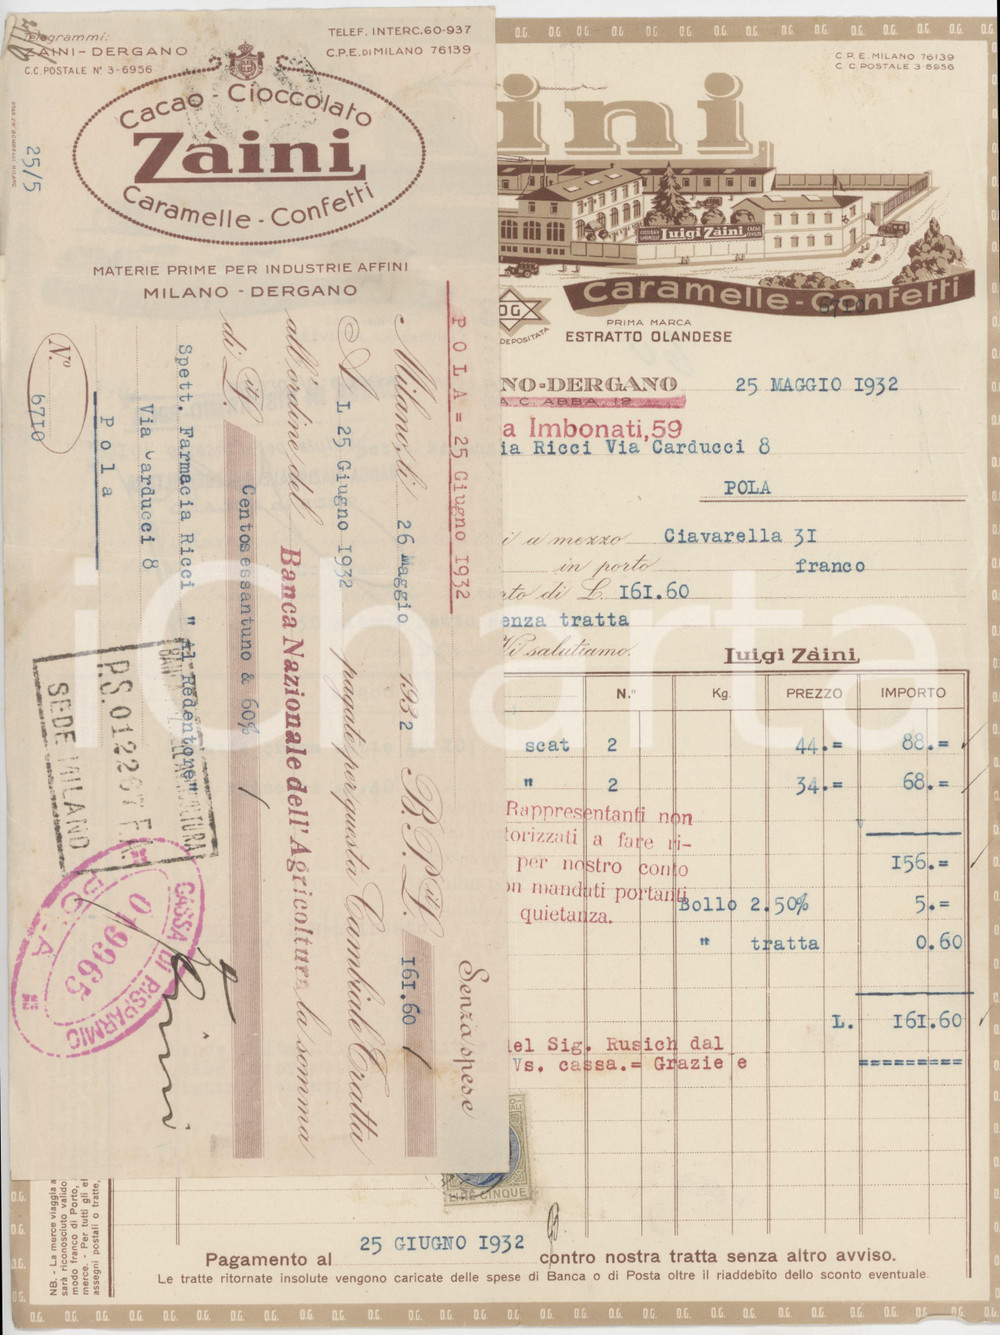 Telegrammi:
ZAINI - DERGANO
C.C. POSTALE N° 3-6956
TELEF. INTERC. 60-937
C.P.E. DI MILANO 76139
Cacao - Cioccolato
Zàini
Caramelle - Confetti
MATERIE PRIME PER INDUSTRIE AFFINI
MILANO - DERGANO
25/5
POLA = 25 Giugno 1932
Milano, li 26 Maggio 1932 B. P. Lit. 161.60
Senza spese
A L 25 Giugno 1932 pagate per questa Cambiale Tratta
all'ordine del Banca Nazionale dell'Agricoltura la somma
di Lit. Centosessantuno & 60%
Spett. Farmacia Ricci " Al Redentore "
Via Carducci 8
Pola
N° 6710
P.S. 012267 F.
SEDE MILANO
CASSA DI RISPARMIO
019965
POLA
C.P.E. MILANO 76139
C.C. POSTALE 3-6956
ini
Luigi Zàini
Caramelle - Confetti
6710
OG
DEPOSITATA
PRIMA MARCA
ESTRATTO OLANDESE
NO-DERGANO
25 MAGGIO 1932
A C ABBA 12
a Imbonati, 59
ia Ricci Via Carducci 8
POLA
i a mezzo Ciavarella 31
in porto franco
rto di L. 161.60
enza tratta
Vi salutiamo.
Luigi Zàini
N.° Kg. PREZZO IMPORTO
scat 2 44.= 88.=
" 2 34.= 68.=
Rappresentanti non
torizzati a fare ri-
per nostro conto
on mandati portanti
quietanza.
156.=
Bollo 2.50% 5.=
" tratta 0.60
L. 161.60
el Sig. Rusich dal
Vs. cassa.= Grazie e
=========
LIRE CINQUE
NB. - La merce viaggia a
sarà riconosciuto valido
modo franco di Porto,
merce. - Per tutti gli ef
assegni postali o tratte,
Pagamento al 25 GIUGNO 1932 contro nostra tratta senza altro avviso.
Le tratte ritornate insolute vengono caricate delle spese di Banca o di Posta oltre il riaddebito dello sconto eventuale.
iCharta